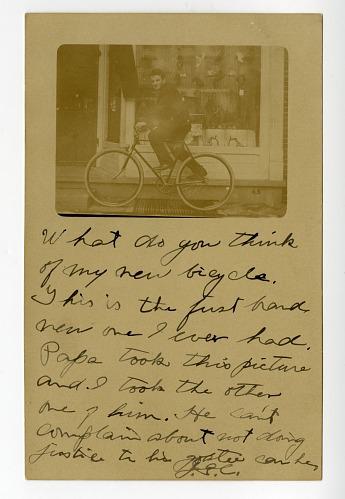 What do you think
of my new bicycle.
This is the first brand
new one I ever had.
Papa took this picture
and I took the other
one of him. He can't
complain about not doing
justice to his goatee can he,
J.S.C.